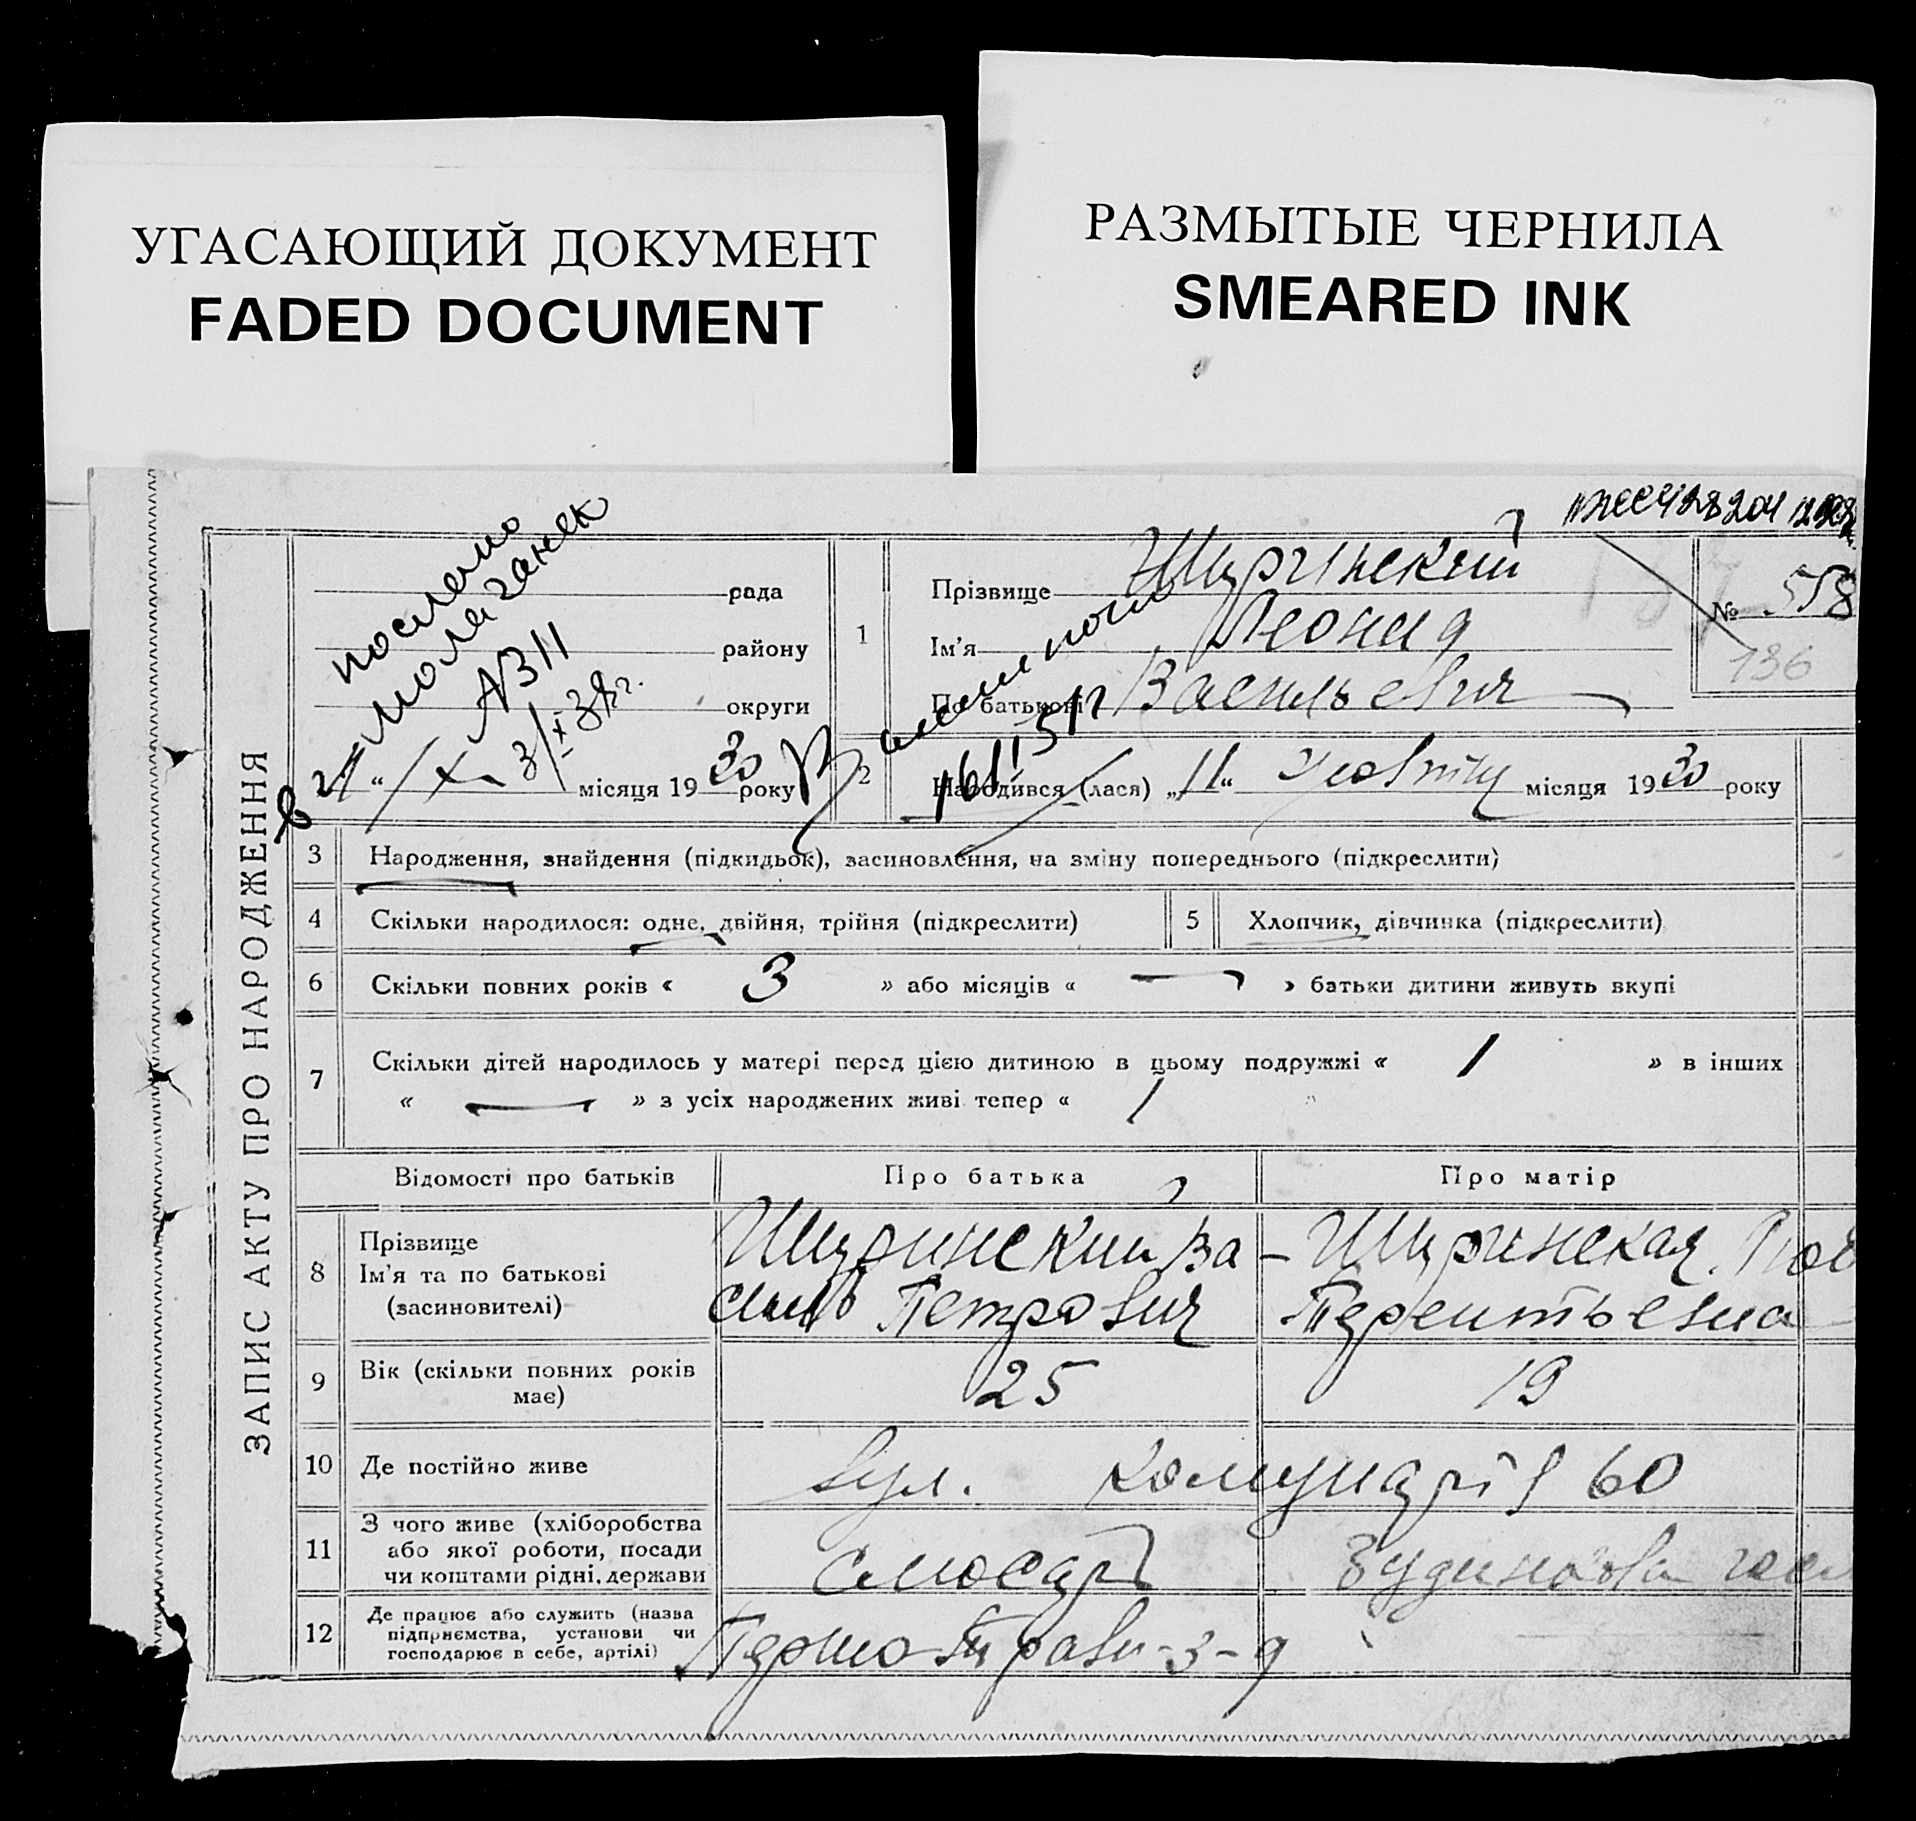 УГАСАЮЩИЙ ДОКУМЕНТ
FADED DOCUMENT
РАЗМЫТЫЕ ЧЕРНИЛА
SMEARED INK
ЗАПИС АКТУ ПРО НАРОДЖЕННЯ
рада
району
округи
"21" /X місяця 1930 року
3/XI 38 г.
№ 558
136
1 Прізвище Щуринский
Ім'я Леонид
По батькові Васильевич
2 Народився (лася) „11“ Жовтня місяця 1930 року
3 Народження, знайдення (підкидьок), засиновлення, на зміну попереднього (підкреслити)
4 Скільки народилося: одне, двійня, трійня (підкреслити)
5 Хлопчик, дівчинка (підкреслити)
6 Скільки повних років « 3 » або місяців « — » батьки дитини живуть вкупі
7 Скільки дітей народилось у матері перед цією дитиною в цьому подружжі « 1 » в інших
« — » з усіх народжених живі тепер « 1 »
Відомості про батьків Про батька Про матір
8 Прізвище
Ім'я та по батькові
(засиновителі)
Щуринский Ва
силь Петрович
Щуринская
Терентьевна
9 Вік (скільки повних років
має)
25 19
10 Де постійно живе вул. Комунарів 60
11 З чого живе (хліборобства
або якої роботи, посади
чи коштами рідні, держави
слюсарь
12 Де працює або служить (назва
підприємства, установи чи
господарює в себе, артілі)